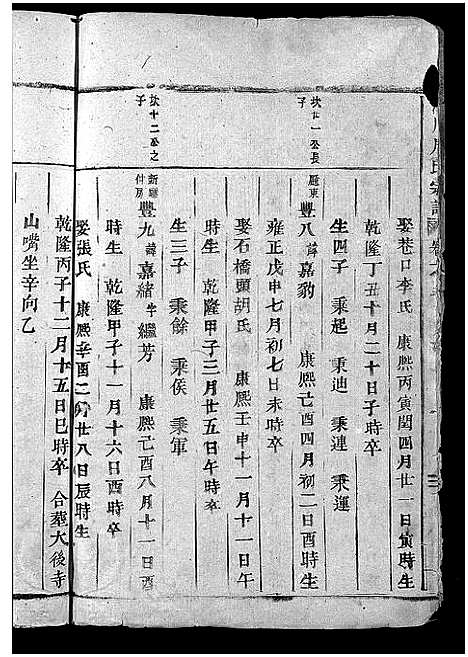 周氏宗譜
娶巷口李氏 康熙丙寅閏四月廿一日寅時生
乾隆丁丑十月二十日子時卒
生四子 秉起 秉迪 秉連 秉運
坎廿一公長子
羅東 豐八 諱嘉豹 康熙己酉四月初二日酉時生
雍正戊申七月初七日未時卒
娶石橋頭胡氏 康熙壬申十一月十一日午
時生 乾隆甲子三月廿五日午時卒
生三子 秉餘 秉侯 秉軍
坎十二公之子
豐九 諱嘉緒 字繼芳 康熙己酉八月十一日酉
時生 乾隆甲子十一月十六日酉時卒
娶張氏 康熙辛酉二月廿八日辰時生
乾隆丙子十二月十五日巳時卒 合葬大後寺
山嘴坐辛向乙